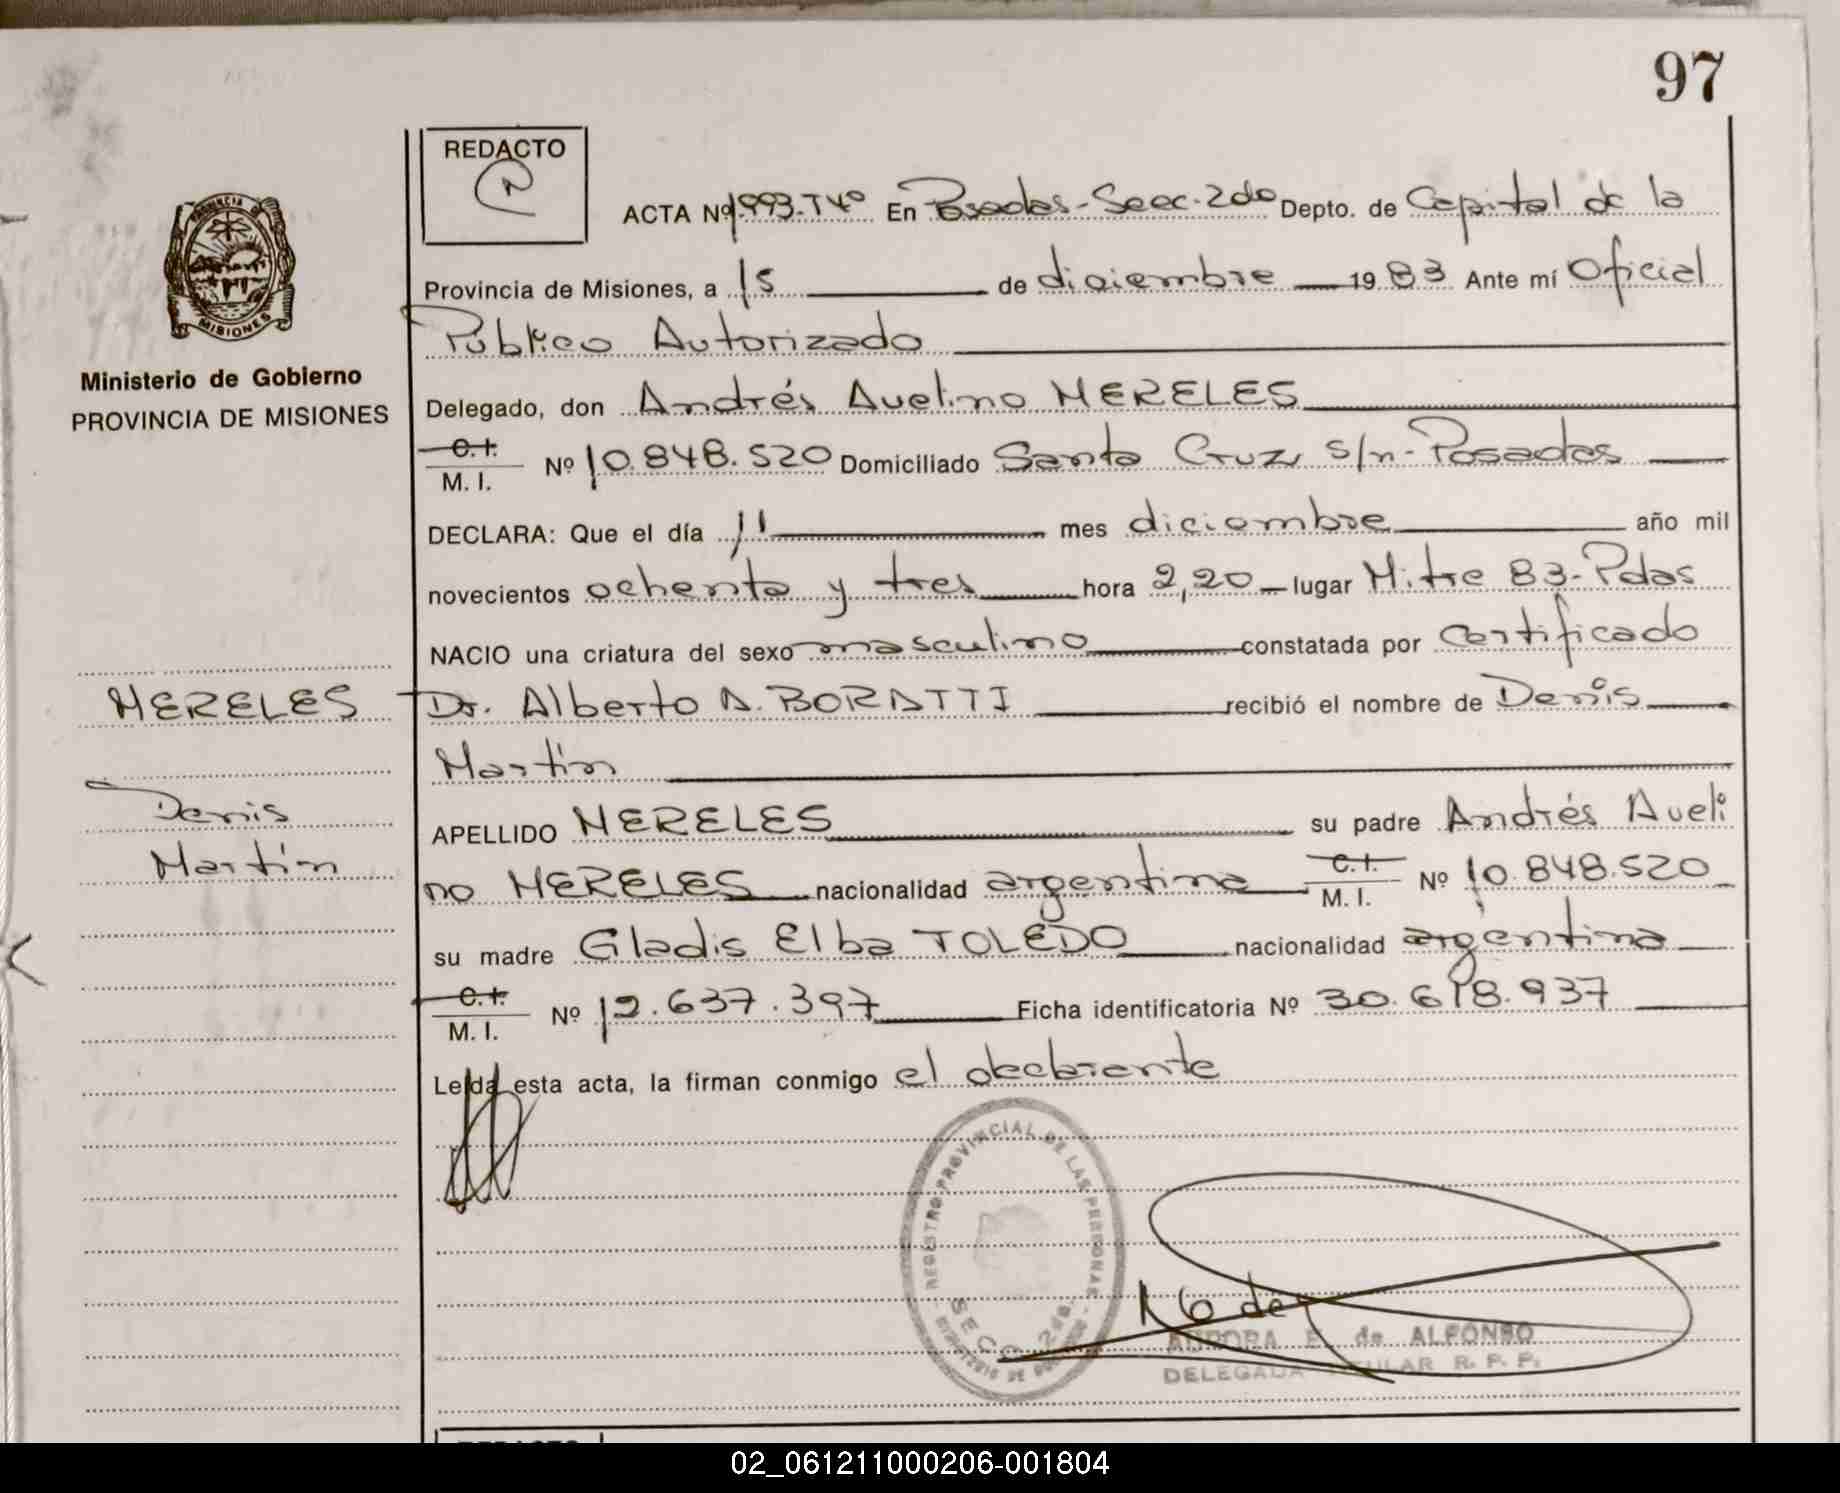 97
REDACTO
ACTA Nº 1.993-Tº4º En Posadas-Secc. 2da Depto. de Capital de la
Provincia de Misiones, a 15 de diciembre 1983 Ante mí Oficial
Público Autorizado
Delegado, don Andrés Avelino MERELES
C. I.
M. I. Nº 10.848.520 Domiciliado Santa Cruz s/n- Posadas
DECLARA: Que el día 11 mes diciembre año mil
novecientos ochenta y tres hora 2,20 lugar Mitre 83-Pdas
NACIO una criatura del sexo masculino constatada por Certificado
Dr. Alberto A. BORATTI recibió el nombre de Denis
Martín
APELLIDO MERELES su padre Andrés Aveli
no MERELES nacionalidad argentina C. I. M. I. Nº 10.848.520
su madre Gladis Elba TOLEDO nacionalidad argentina
C. I.
M. I. Nº 12.637.397 Ficha identificatoria Nº 30.618.937
Leída esta acta, la firman conmigo el declarante
PROVINCIA DE
MISIONES
Ministerio de Gobierno
PROVINCIA DE MISIONES
MERELES
Denis
Martín
REGISTRO PROVINCIAL DE LAS PERSONAS
SECC. 2da.
AURORA E. de ALFONSO
DELEGADA TITULAR R. P. P.
02_061211000206-001804